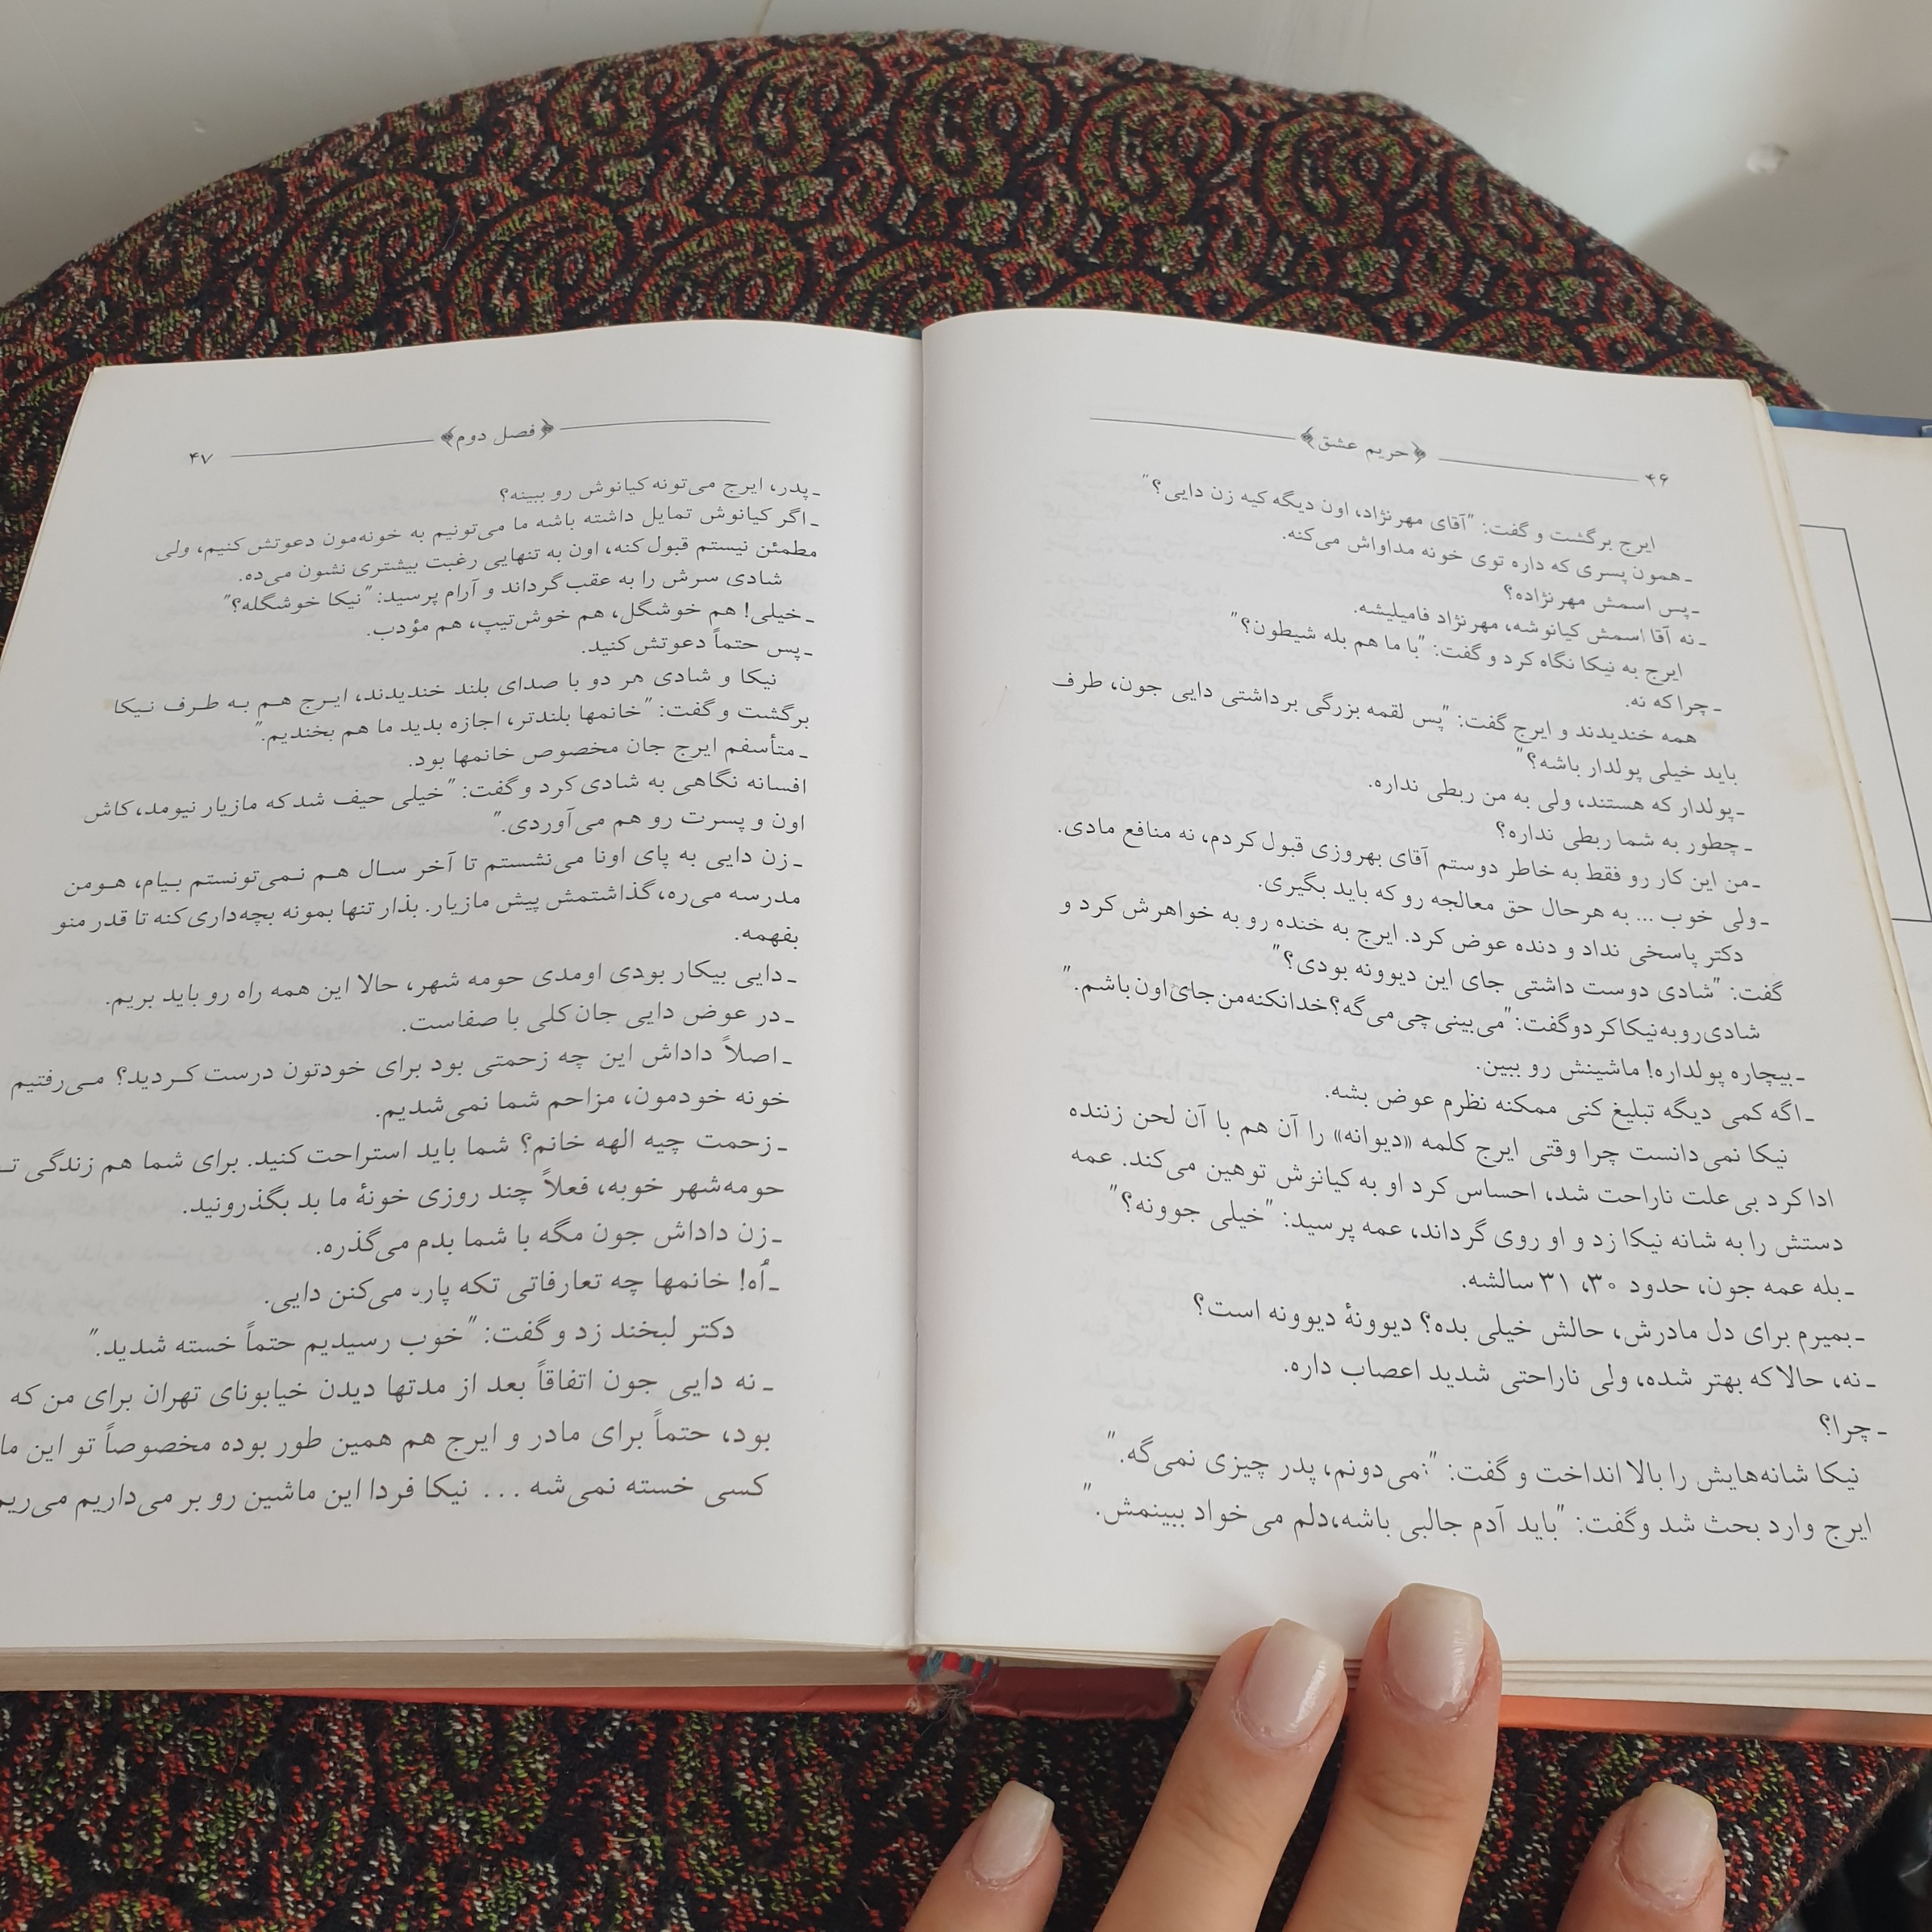 ۴۶
﴿حریم عشق﴾
ایرج برگشت و گفت: "آقای مهرنژاد، اون دیگه کیه زن دایی؟"
ـ همون پسری که داره توی خونه مداواش می‌کنه.
ـ پس اسمش مهرنژاده؟
ـ نه آقا اسمش کیانوشه، مهرنژاد فامیلیشه.
ایرج به نیکا نگاه کرد و گفت: "با ما هم بله شیطون؟"
ـ چرا که نه.
همه خندیدند و ایرج گفت: "پس لقمه بزرگی برداشتی دایی جون، طرف
باید خیلی پولدار باشه؟"
ـ پولدار که هستند، ولی به من ربطی نداره.
ـ چطور به شما ربطی نداره؟
ـ من این کار رو فقط به خاطر دوستم آقای بهروزی قبول کردم، نه منافع مادی.
ـ ولی خوب ... به هرحال حق معالجه رو که باید بگیری.
دکتر پاسخی نداد و دنده عوض کرد. ایرج به خنده رو به خواهرش کرد و
گفت: "شادی دوست داشتی جای این دیوونه بودی؟"
شادی رو به نیکا کرد و گفت: "می‌بینی چی می‌گه؟ خدا نکنه من جای اون باشم."
ـ بیچاره پولداره! ماشینش رو ببین.
ـ اگه کمی دیگه تبلیغ کنی ممکنه نظرم عوض بشه.
نیکا نمی‌دانست چرا وقتی ایرج کلمه «دیوانه» را آن هم با آن لحن زننده
ادا کرد بی‌علت ناراحت شد، احساس کرد او به کیانوش توهین می‌کند. عمه
دستش را به شانه نیکا زد و او روی گرداند، عمه پرسید: "خیلی جوونه؟"
ـ بله عمه جون، حدود ۳۰، ۳۱ سالشه.
ـ بمیرم برای دل مادرش، حالش خیلی بده؟ دیوونهٔ دیوونه است؟
ـ نه، حالا که بهتر شده، ولی ناراحتی شدید اعصاب داره.
ـ چرا؟
نیکا شانه‌هایش را بالا انداخت و گفت: "نمی‌دونم، پدر چیزی نمی‌گه."
ایرج وارد بحث شد وگفت: "باید آدم جالبی باشه،دلم می‌خواد ببینمش."
﴿فصل دوم﴾
۴۷
ـ پدر، ایرج می‌تونه کیانوش رو ببینه؟
ـ اگر کیانوش تمایل داشته باشه ما می‌تونیم به خونه‌مون دعوتش کنیم، ولی
مطمئن نیستم قبول کنه، اون به تنهایی رغبت بیشتری نشون می‌ده.
شادی سرش را به عقب گرداند و آرام پرسید: "نیکا خوشگله؟"
ـ خیلی! هم خوشگل، هم خوش‌تیپ، هم مؤدب.
ـ پس حتماً دعوتش کنید.
نیکا و شادی هر دو با صدای بلند خندیدند، ایرج هم به طرف نیکا
برگشت و گفت: "خانمها بلندتر، اجازه بدید ما هم بخندیم."
ـ متأسفم ایرج جان مخصوص خانمها بود.
افسانه نگاهی به شادی کرد و گفت: "خیلی حیف شد که مازیار نیومد، کاش
اون و پسرت رو هم می‌آوردی."
ـ زن دایی به پای اونا می‌نشستم تا آخر سال هم نمی‌تونستم بیام، هومن
مدرسه می‌ره، گذاشتمش پیش مازیار. بذار تنها بمونه بچه‌داری کنه تا قدر منو
بفهمه.
ـ دایی بیکار بودی اومدی حومه شهر، حالا این همه راه رو باید بریم.
ـ در عوض دایی جان کلی با صفاست.
ـ اصلاً داداش این چه زحمتی بود برای خودتون درست کردید؟ می‌رفتیم
خونه خودمون، مزاحم شما نمی‌شدیم.
ـ زحمت چیه الهه خانم؟ شما باید استراحت کنید. برای شما هم زندگی تـ
حومه‌شهر خوبه، فعلاً چند روزی خونهٔ ما بد بگذرونید.
ـ زن داداش جون مگه با شما بدم می‌گذره.
ـ اُه! خانمها چه تعارفاتی تکه پاره می‌کنن دایی.
دکتر لبخند زد و گفت: "خوب رسیدیم حتماً خسته شدید."
ـ نه دایی جون اتفاقاً بعد از مدتها دیدن خیابونای تهران برای من که
بود، حتماً برای مادر و ایرج هم همین طور بوده مخصوصاً تو این ما
کسی خسته نمی‌شه ... نیکا فردا این ماشین رو بر می‌داریم می‌ریم